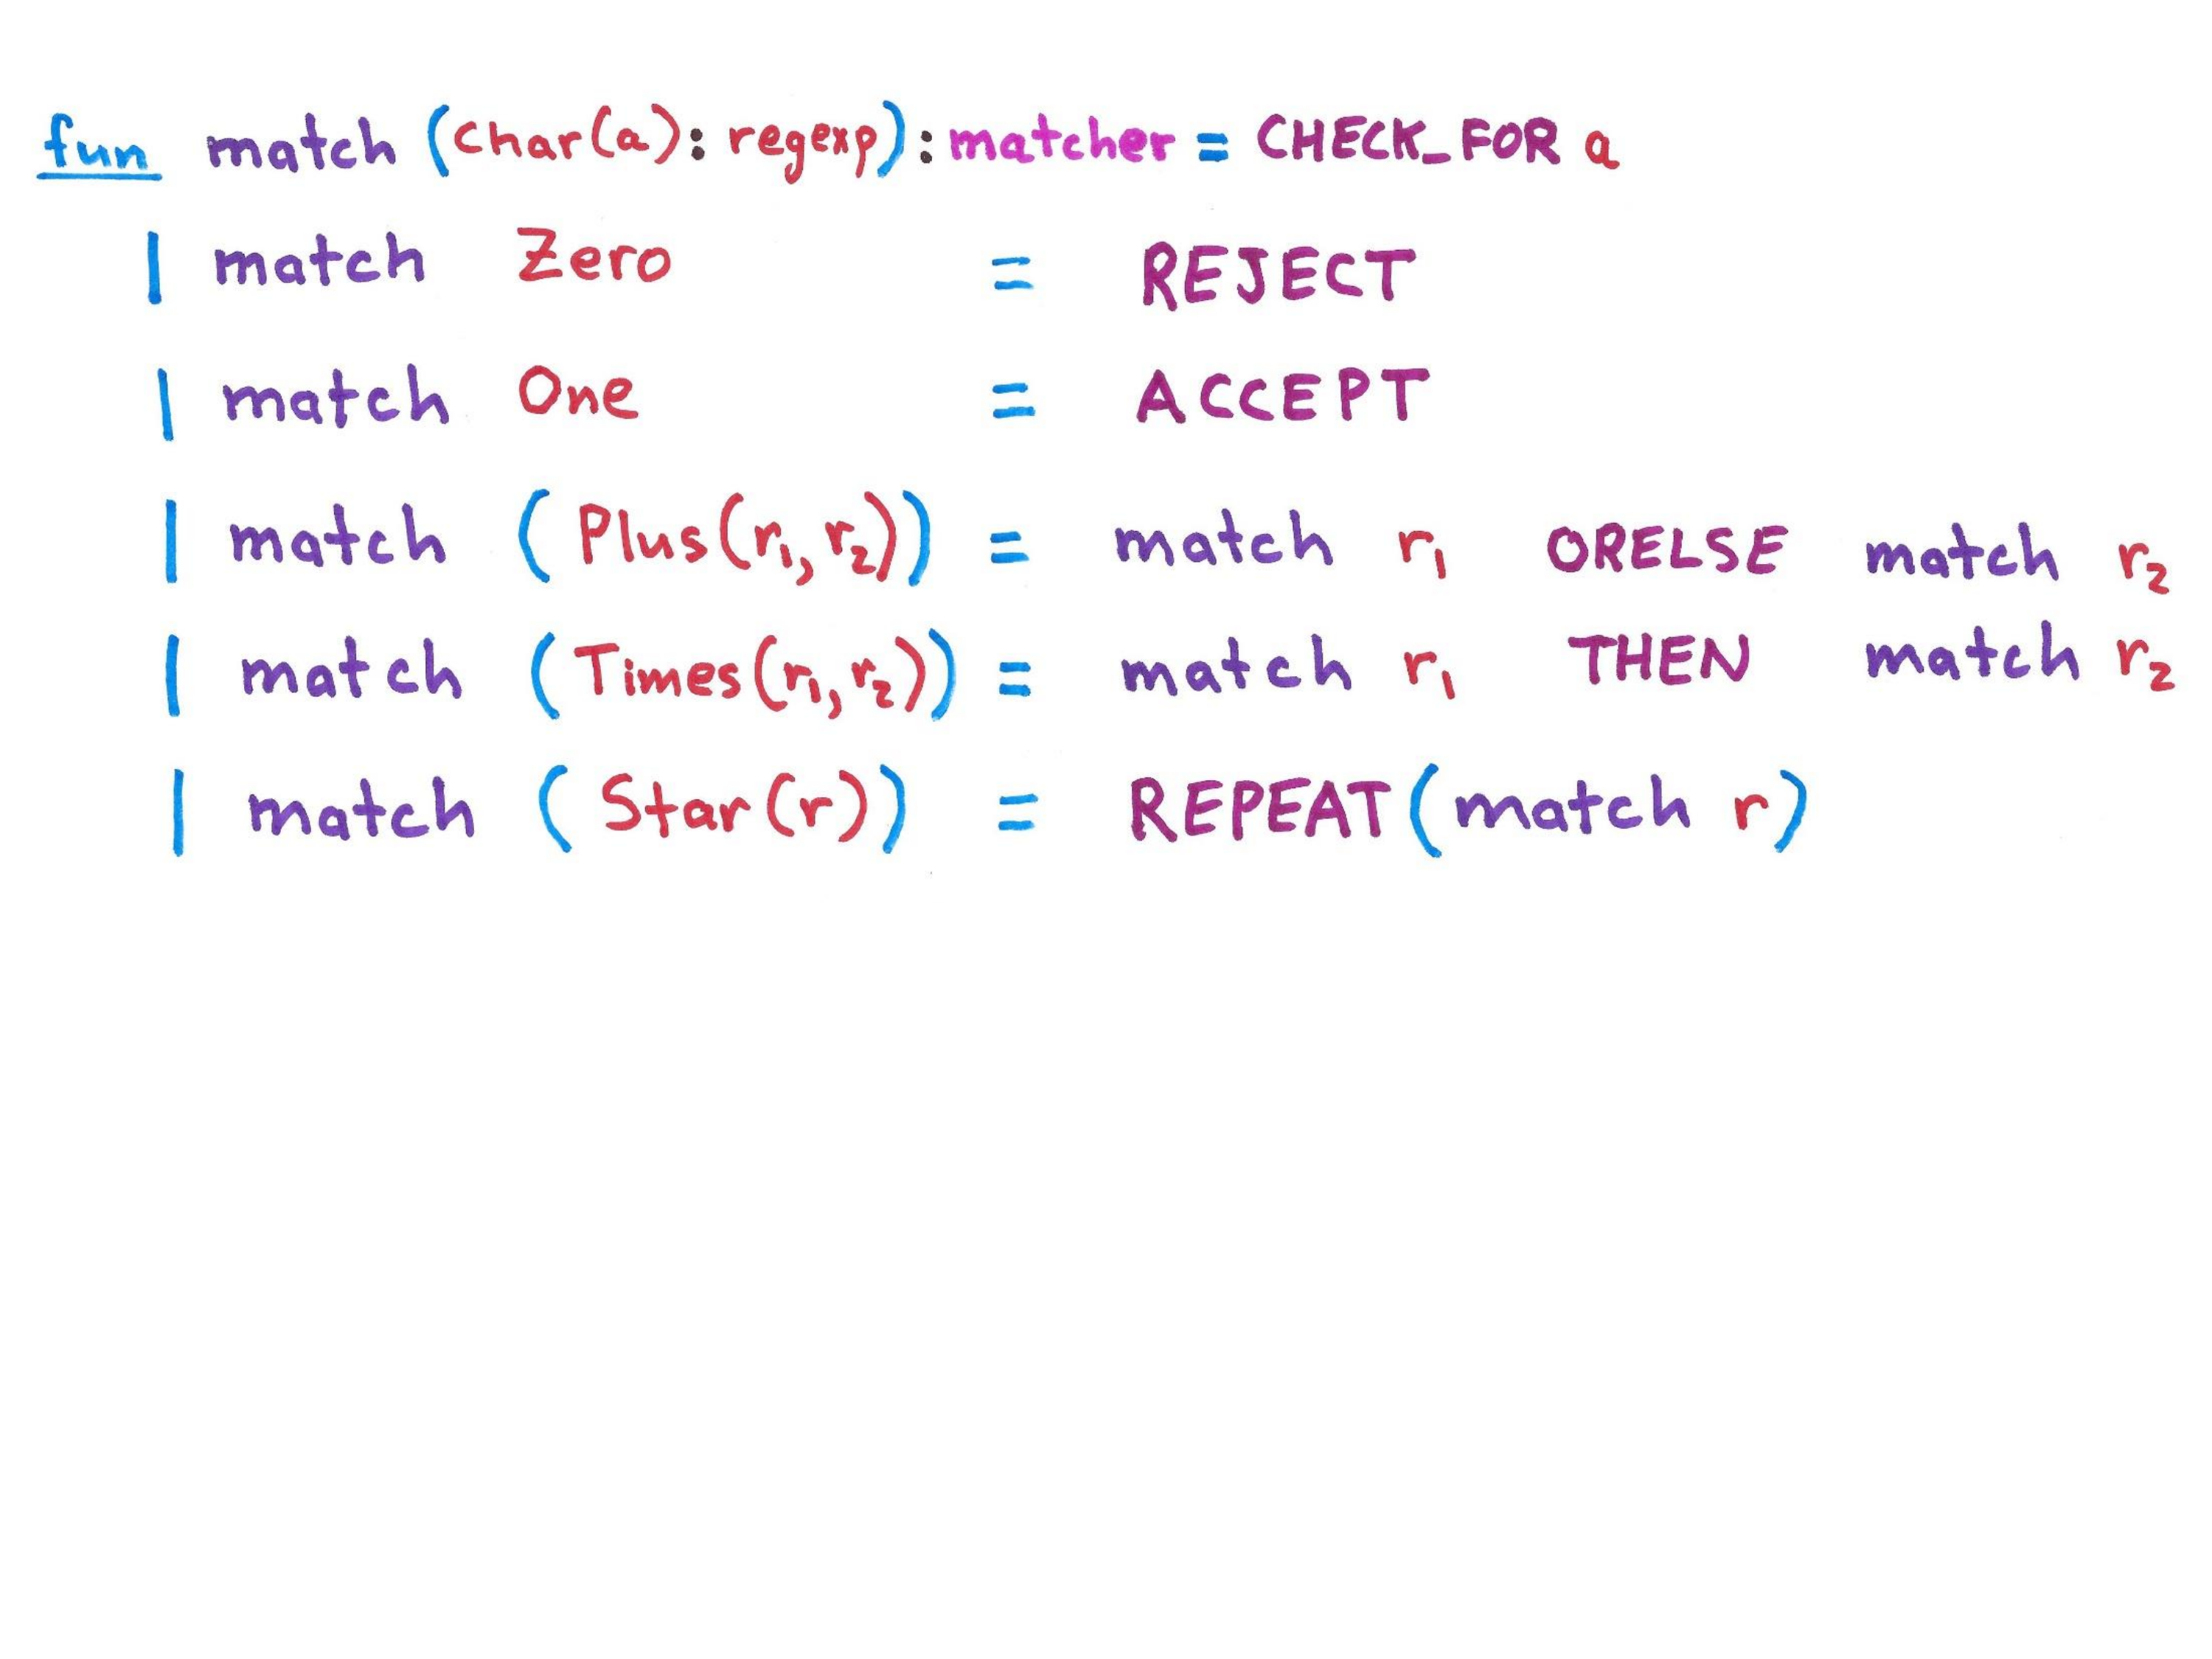 fun match (char(a): regexp): matcher = CHECK_FOR a
| match Zero = REJECT
| match One = ACCEPT
| match (Plus(r₁, r₂)) = match r₁ ORELSE match r₂
| match (Times(r₁, r₂)) = match r₁ THEN match r₂
| match (Star(r)) = REPEAT(match r)